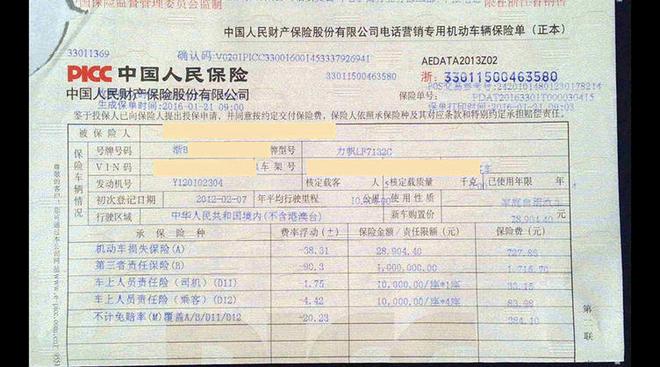 中国人民财产保险股份有限公司电话营销专用机动车辆保险单（正本）
33011369
确认码：V0201PICC330016001453337926941
AEDATA2013Z02
PICC 中国人民保险
33011500463580
浙：33011500463580
中国人民财产保险股份有限公司
生成保单时间：2016-01-21 09:00
保险单号：PDAT20163301T000030415
鉴于投保人已向保险人提出投保申请，并同意按约定交付保险费，保险人依照承保险种及其对应条款和特别约定承担赔偿责任。
被保险人
保险车辆情况
号牌号码 浙B 牌型号 力帆LF7132C
VIN码 车架号
发动机号 Y120102304 核定载客 人 5 核定载质量 千克 已使用年限 年
初次登记日期 2012-02-07 年平均行驶里程 公里 使用性质
行驶区域 中华人民共和国境内(不含港澳台) 新车购置价 78,904.40
承保险种 费率浮动（±） 保险金额/责任限额（元） 保险费（元）
机动车损失保险(A) -38.31 28,904.40 727.86
第三者责任保险(B) -90.3 1,000,000.00 1,716.70
车上人员责任险（司机）(D11) -1.75 10,000.00/座*1座 33.15
车上人员责任险（乘客）(D12) -4.42 10,000.00/座*4座 83.98
不计免赔率(M)覆盖A/B/D11/D12 -20.23 384.10
第一联